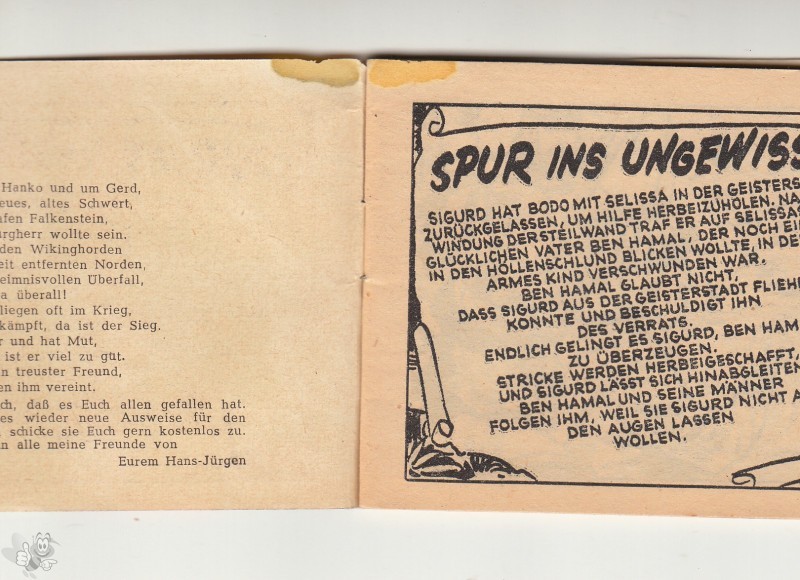 Hanko und um Gerd,
eues, altes Schwert,
afen Falkenstein,
rgherr wollte sein.
den Wikinghorden
eit entfernten Norden,
eimnisvollen Überfall,
a überall!
liegen oft im Krieg,
kämpft, da ist der Sieg.
r und hat Mut,
ist er viel zu gut.
n treuster Freund,
en ihm vereint.
ch, daß es Euch allen gefallen hat.
es wieder neue Ausweise für den
schicke sie Euch gern kostenlos zu.
n alle meine Freunde von
Eurem Hans-Jürgen
SPUR INS UNGEWISS
SIGURD HAT BODO MIT SELISSA IN DER GEISTERS
ZURÜCKGELASSEN, UM HILFE HERBEIZUHOLEN. NA
WINDUNG DER STEILWAND TRAF ER AUF SELISSAS
GLÜCKLICHEN VATER BEN HAMAL, DER NOCH EIN
IN DEN HÖLLENSCHLUND BLICKEN WOLLTE, IN DE
ARMES KIND VERSCHWUNDEN WAR.
BEN HAMAL GLAUBT NICHT,
DASS SIGURD AUS DER GEISTERSTADT FLIEHE
KONNTE UND BESCHULDIGT IHN
DES VERRATS.
ENDLICH GELINGT ES SIGURD, BEN HAM
ZU ÜBERZEUGEN.
STRICKE WERDEN HERBEIGESCHAFFT,
UND SIGURD LÄSST SICH HINABGLEITEN
BEN HAMAL UND SEINE MÄNNER
FOLGEN IHM, WEIL SIE SIGURD NICHT A
DEN AUGEN LASSEN
WOLLEN.